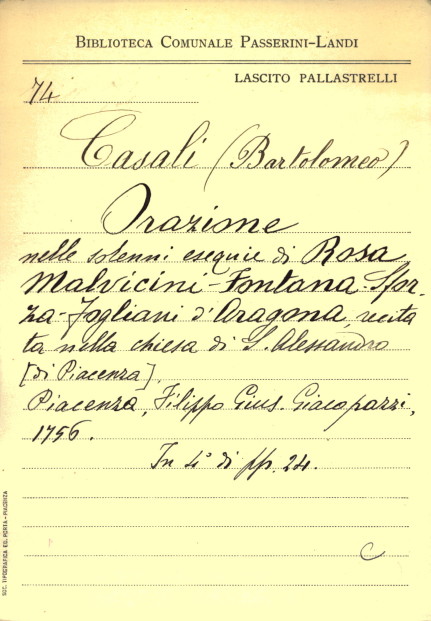 BIBLIOTECA COMUNALE PASSERINI-LANDI
LASCITO PALLASTRELLI
74
Casali (Bartolomeo)
Orazione
nelle solenni esequie di Rosa
Malvicini-Fontana-Sfor-
za-Fogliani d'Aragona, recita
ta nella chiesa di S. Alessandro
[di Piacenza].
Piacenza, Filippo Gius. Giacopazzi,
1756.
In 4° di pp. 24.
C
SOC. TIPOGRAFICA ED. PORTA - PIACENZA